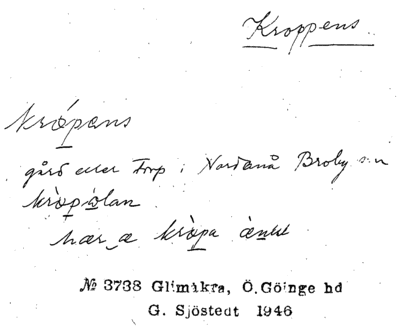 Kroppens
krȯ́pans
gård eller torp i Nordanå Broby sn
krȯ̀pȯlan
hær æ krȯ̀pa
№ 3738 Glimåkra, Ö.Göinge hd
G. Sjöstedt 1946